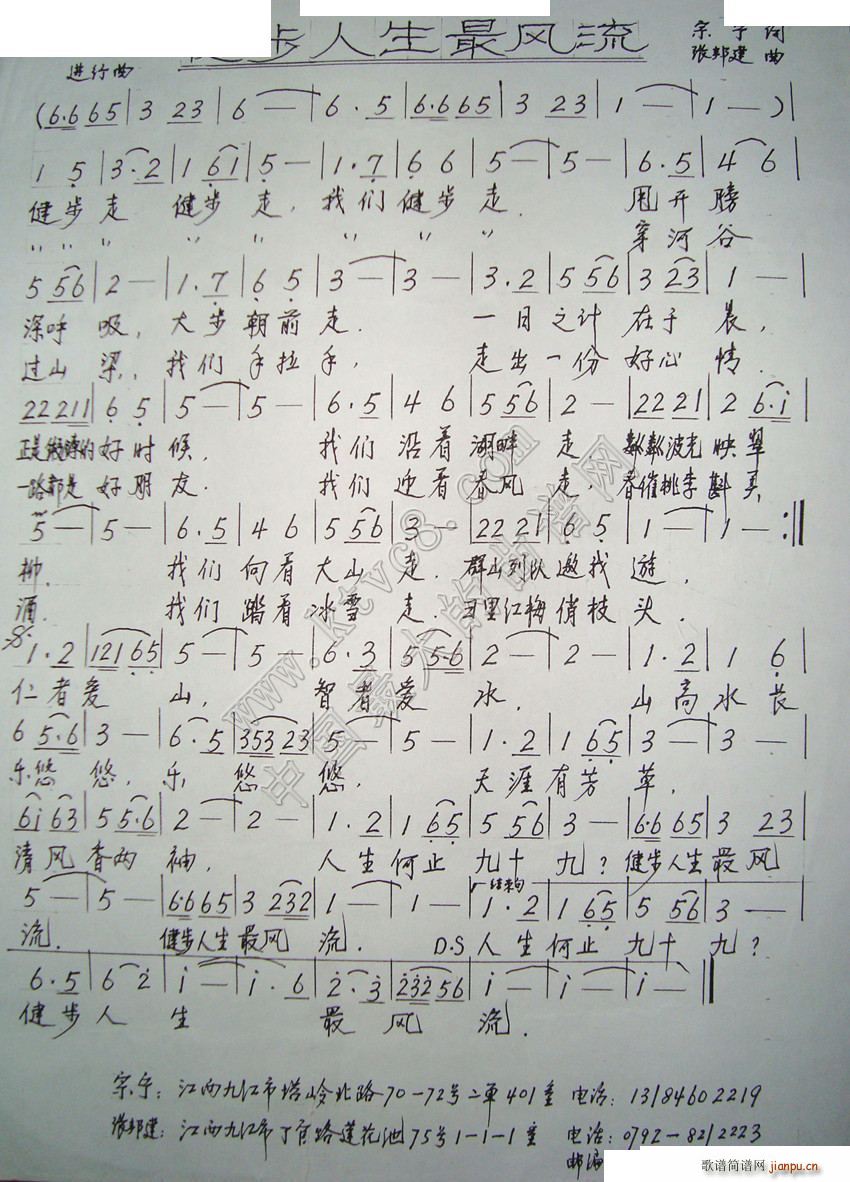 健步人生最风流
宗宁 词
进行曲
张邦建 曲
(6·6 65|3 23|6 —|6·5|6·6 65|3 23|1 —|1 —)|
1 5|3·2|1 61|5 —|1·7|6 6|5 —|5 —|6·5|4 6|
健步走 健步走,我们健步走. 甩开膀
〃 〃 〃 〃 〃 〃 〃 穿河谷
5 56|2 —|1·7|6 5|3 —|3 —|3·2|5 56|3 23|1 —|
深呼吸,大步朝前走. 一日之计在于晨,
过山梁,我们手拉手, 走出一份好心情.
22 211|6 5|5 —|5 —|6·5|4 6|5 56|2 —|22 21|2 6·i|
正是锻炼的好时候, 我们沿着湖畔走,粼粼波光映翠
一路都是好朋友. 我们迎着春风走.春催桃李斟美
5 —|5 —|6·5|4 6|5 56|3 —|22 21|6 5|1 —|1 —:||
柳. 我们向着大山走.群山列队邀我遊,
酒. 我们踏着冰雪走.里红梅俏枝头.
1·2|121 65|5 —|5 —|6·3|5 5·6|2 —|2 —|1·2|1 6|
仁者爱山, 智者爱水, 山高水长
6 5·6|3 —|6·5|353 23|5 —|5 —|1·2|1 65|3 —|3 —|
乐悠悠,乐悠悠. 天涯有芳草,
6i 63|5 5·6|2 —|2 —|1·2|1 65|5 56|3 —|6·6 65|3 23|
清风香两袖, 人生何止九十九?健步人生最风
结束句
5 —|5 —|6·6 65|3 232|1 —|1 —|1·2|1 65|5 56|3 —|
流. 健步人生最风流. D.S 人生何止九十九?
6·5|6 2|i —|i·6|2·3|232 56|i —|i —|i —||
健步人生 最风流.
宗宁:江西九江市塔岭北路70-72号二单401室 电话:13184602219
张邦建:江西九江市丁官路莲花池75号1-1-1室 电话:0792-8212223
邮编
www.ktvc8.com
中国最大的曲谱网
歌谱简谱网 jianpu.cn